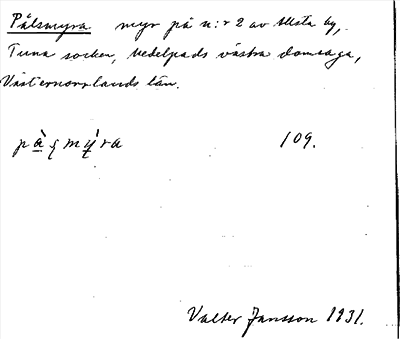 Pålsmyra myr på n:r 2 av Allsta by,
Tuna socken, Medelpads västra domsaga,
Västernorrlands län.
109.
Valter Jansson 1931.